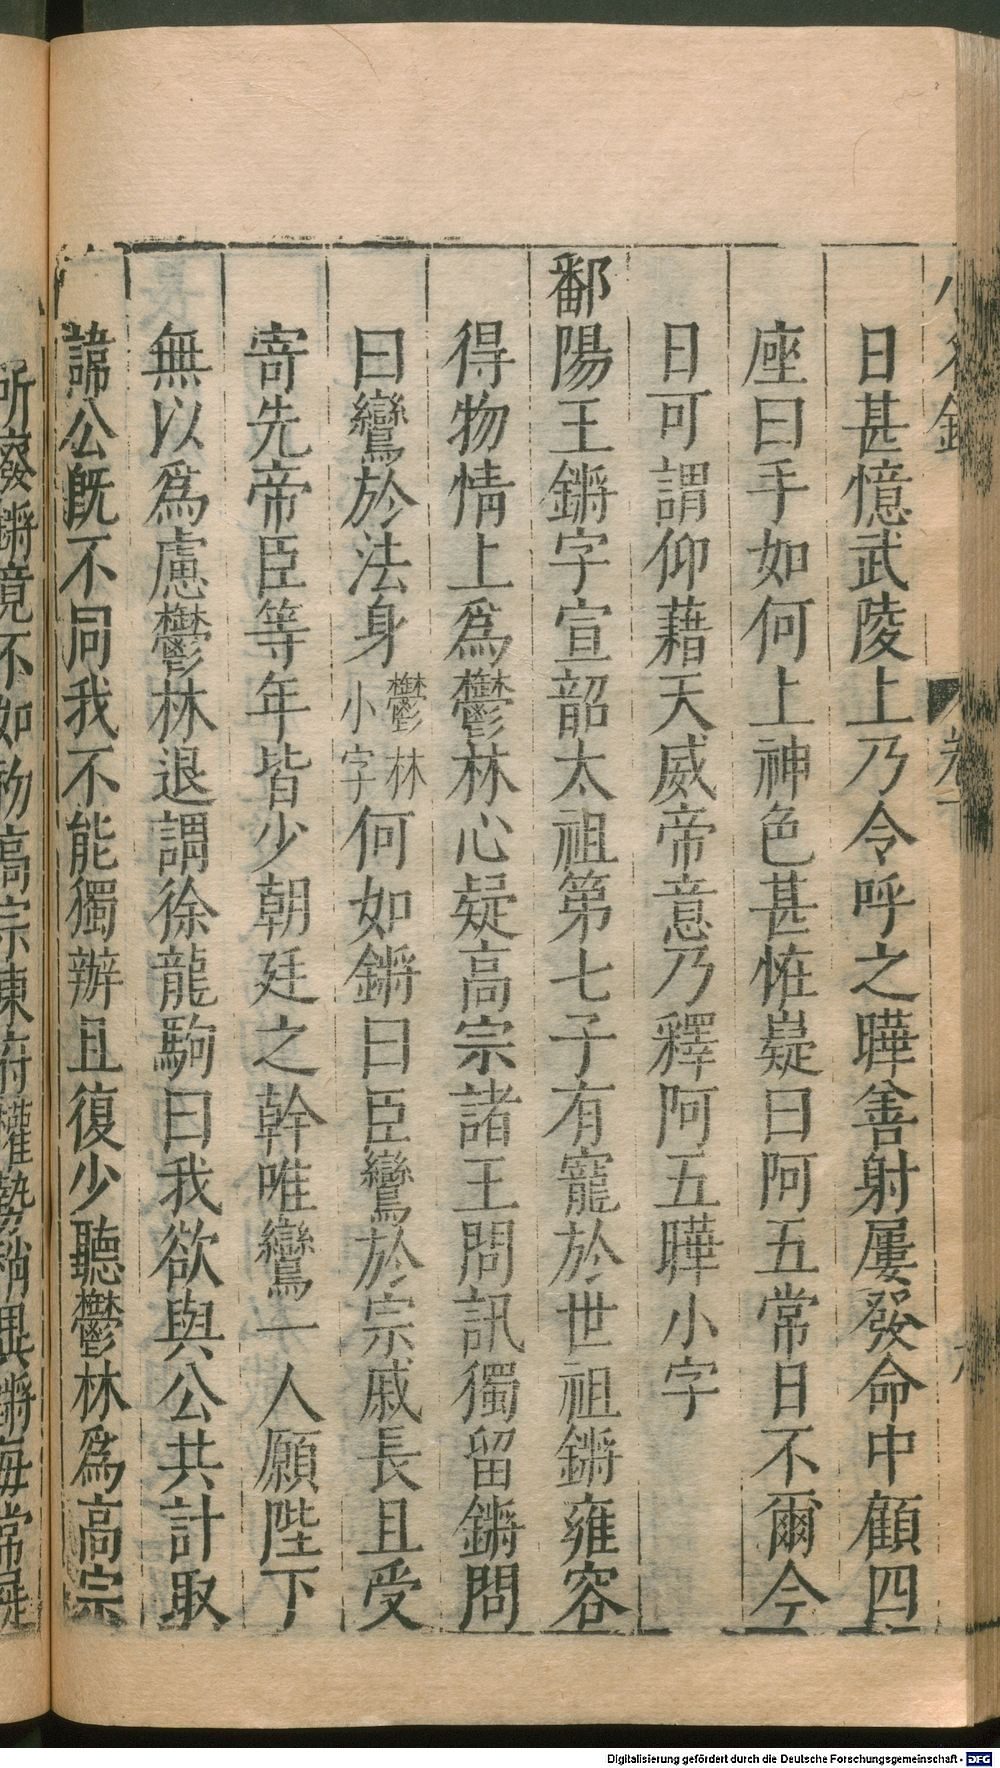 日甚憶武陵上乃令呼之曄善射屢發命中顧四
座曰手如何上神色甚怪嶷曰阿五常日不爾今
日可謂仰藉天威帝意乃釋阿五曄小字
鄱陽王鏘字宣韶太祖第七子有寵於世祖鏘雍容
得物情上爲鬱林心疑高宗諸王問訊獨留鏘問
曰鸞於法身鬱林小字何如鏘曰臣鸞於宗戚長且受
寄先帝臣等年皆少朝廷之幹唯鸞一人願陛下
無以爲慮鬱林退謂徐龍駒曰我欲與公共計取
諱公旣不同我不能獨辦且復少聽鬱林爲高宗
所廢鏘竟不知高宗東府權勢稍異鏘每常
Digitalisierung gefördert durch die Deutsche Forschungsgemeinschaft - DFG